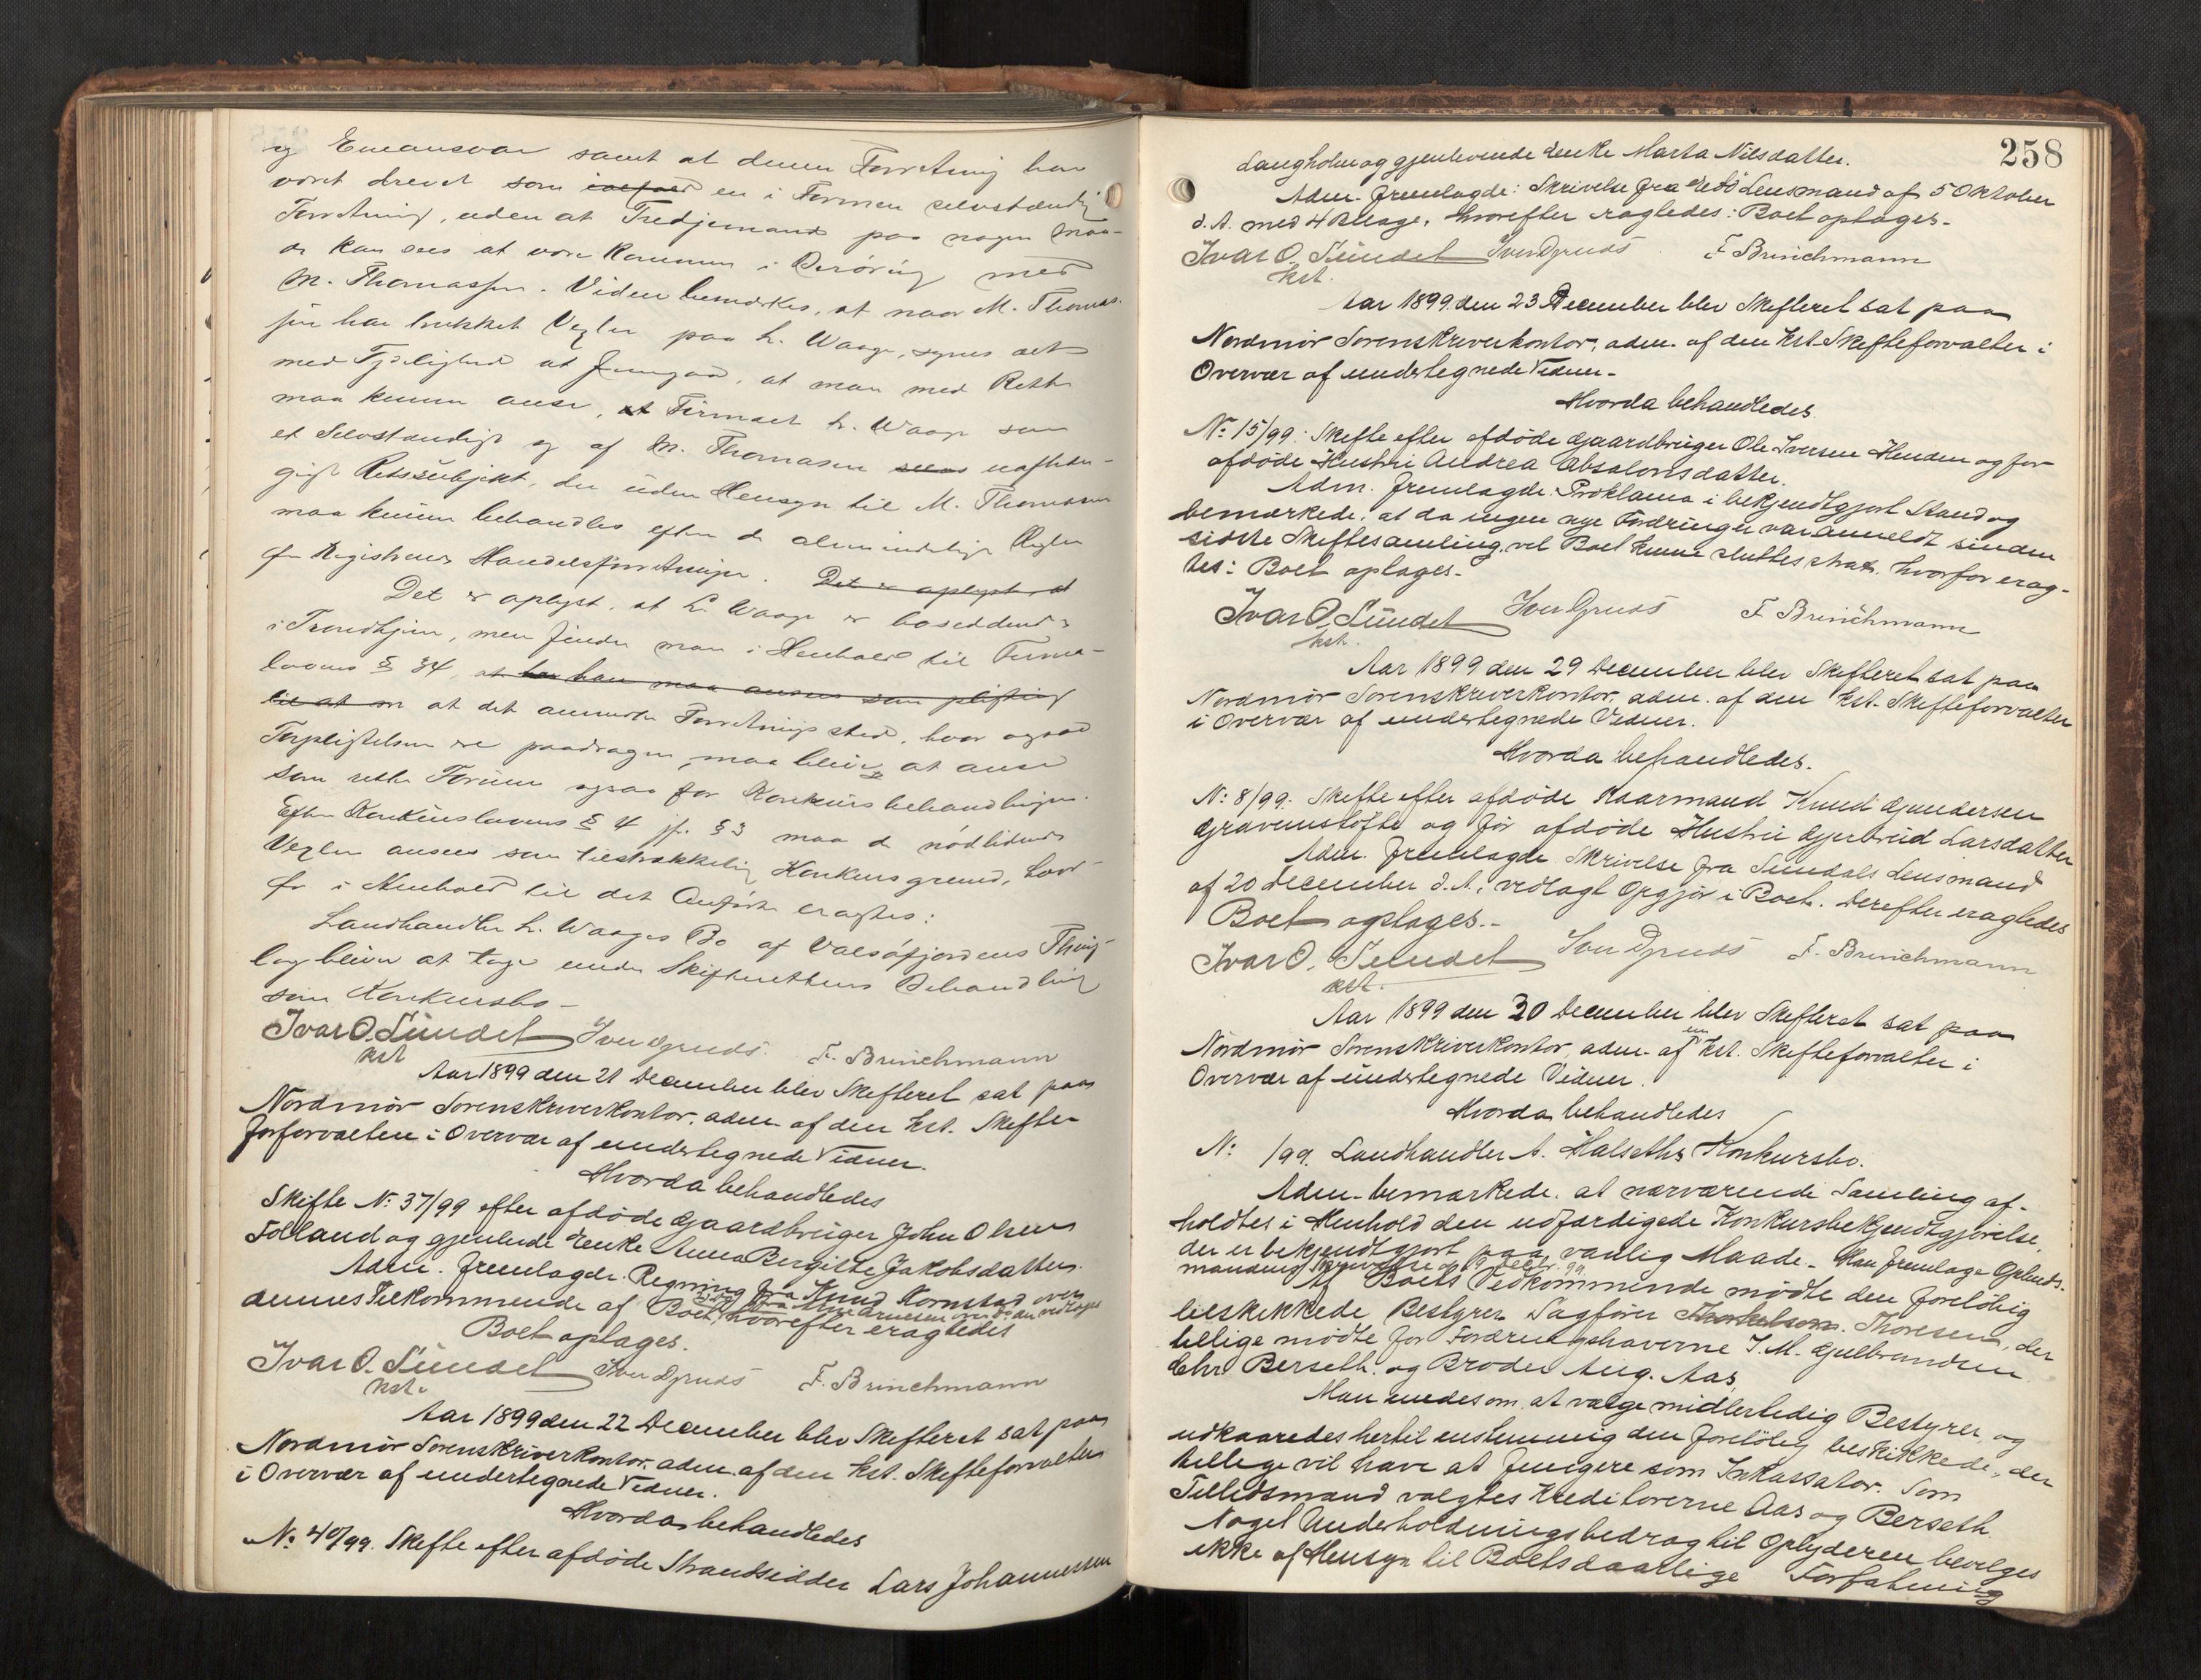 og Eneansvar samt at denne Forretning har
været drevet som en i Formen selvstændig
Forretning, uden at Tredjemand paa nogen Maa-
de kan sees at være kommen i Berøring med
M. Thomassen. Videre bemærkes, at naar M. Thomas-
sen har trukket Vexler paa L. Waage, synes det
med Tydelighed at fremgaa, at man med Rette
maa kunne anse, at Firmaet L. Waage som
et selvstændigt og af M. Thomasen uafhæn-
gigt Retssubjekt, der uden Hensyn til M. Thomasen
maa kunne behandles efter de almindelige Regler
for Registrerede Handelsforretninger. Det er oplyst, at
Det er oplyst, at L. Waage er bosiddende
i Trondhjem, men finder man i Henhold til Firma-
lovens § 34, at han maa ansees som pligtig
til at at det anmeldte Forretningssted, hvor ogsaa
Forpligtelsen er paadragen, maa blive at anse
som rette Forum ogsaa for Konkursbehandlingen.
Efter Konkurslovens § 4 jf. § 3 maa de nødlidende
Vexler ansees som tilstrækkelig Konkursgrund, hvor-
for i Henhold til det Anførte eragtes:
Landhandler L. Waages Bo af Valsøfjordens Thing-
lag bliver at tage under Skifterettens Behandling
som Konkursbo –
Ivar O. Sundet Iver Gruds F. Brinchmann
kst
Aar 1899 den 21 December blev Skifteret sat paa
Nordmør Sorenskriverkontor, adm. af den kst. Skifte-
forforvalter i Overvær af undertegnede Vidner.
Hvorda behandledes
Skifte No 37/99 efter afdøde Gaardbruger John Olsen
Folland og gjenlevde Enke Anna Bergitte Jakobsdatter.
Adm. fremlagde Regning fra Knud Kornstad over
dennes Tilkommende af Boet, hvorefter eragtedes
Boet optages.
Ivar O. Sundet Iver Gruds F. Brinchmann
kst.
Aar 1899 den 22 December blev Skifteret sat paa
Nordmør Sorenskriverkontor, adm. af den kst. Skifteforvalter
i Overvær af undertegnede Vidner.
Hvorda behandledes
No 40/99. Skifte efter afdøde Strandsidder Lars Johannessen
258
Langholm og gjenlevende Enke Marta Nilsdatter.
Adm. fremlagde: Skrivelse fra Edø Lensmand af 5 Oktober
d. A. med 4 Bilage, hvorefter eragtedes: Boet optages –
Ivar O. Sundet Iver Gruds F. Brinchmann
kst.
Aar 1899 den 23 December blev Skifteret sat paa
Nordmør Sorenskriverkontor, adm. af den kst. Skifteforvalter i
Overvær af undertegnede Vidner –
Hvorda behandledes
No 15/99: Skifte efter afdøde Gaardbruger Ole Iversen Henden og før
afdøde Hustru Andrea Absalonsdatter.
Adm. fremlagde Proklama i bekjendtgjort Stand og
bemærkede, at da ingen nye Fordringer var anmeldt siden
sidste Skiftesamling, vil Boet kunne sluttes strax. hvorfor erag-
tes: Boet optages –
Ivar O. Sundet Iver Gruds F. Brinchmann
kst.
Aar 1899 den 29 December blev Skifteret sat paa
Nordmør Sorenskriverkontor, adm. af den kst. Skifteforvalter
i Overvær af undertegnede Vidner.
Hvorda behandledes.
No 8/99. Skifte efter afdøde Kaarmand Knud Gundersen
Gravemstøfte og før afdøde Hustru Gjertrud Larsdatter
Adm. fremlagde Skrivelse fra Sundals Lensmand
af 20 December d. A., vedlagt Opgjør i Boet. Derefter eragtedes
Boet optages. –
Ivar O. Sundet Iver Gruds F. Brinchmann
kst.
Aar 1899 den 30 December blev Skifteret sat paa
Nordmør Sorenskriverkontor, adm. af den kst. Skifteforvalter i
Overvær af undertegnede Vidner.
Hvorda behandledes
No /99. Landhandler A. Halseths Konkursbo.
Adm. bemærkede, at nærværende Samling af-
holdtes i Henhold den udfærdigede Konkursbekjendtgjørelse,
der er bekjendtgjort paa vanlig Maade. – Man fremlage Opbuds-
mandens Skrivelse af 19 Decbr. 99
Af Boets Vedkommende mødte den foreløbig
beskikkede Bestyrer Sagfører Thorkelsom. Thoresen, der
tillige mødte for Fordringshaverne J. M. Gulbrandsen
Chr. Berseth. og Brødre Aug. Aas.
Man enedes om at vælge midlertidig Bestyrer, og
udkaaredes hertil enstemmig den foreløbig beskikkede, der
tillige vil have at fungere som Inkassator. Som
Tillidsmænd valgtes Kreditorerne Aas og Berseth.
Noget Underholdningsbedrag til Opbyderen bevilges
ikke af Hensyn til Boets daarlige Forfatning